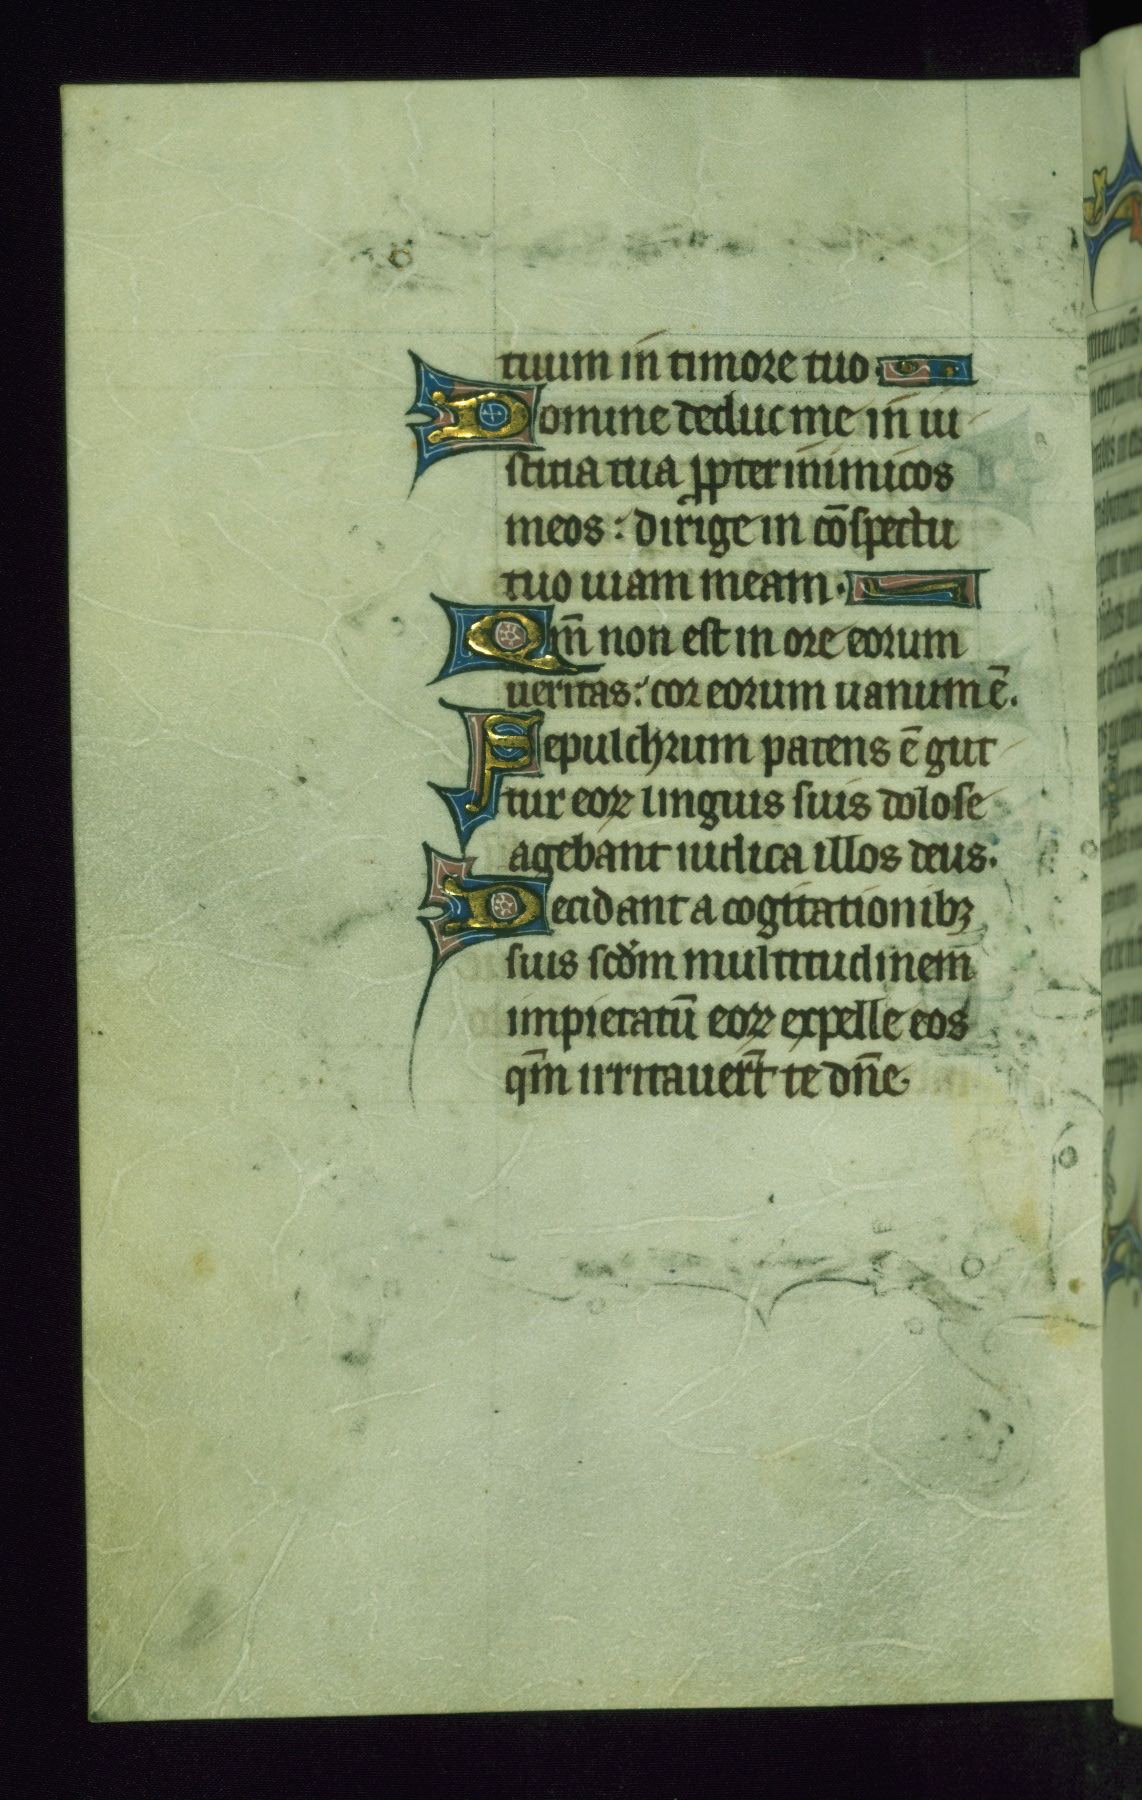 tuum in timore tuo.
Domine deduc me in iu
sticia tua ꝓpter inimicos
meos: dirige in cōspectu
tuo uiam meam.
Qm̄ non est in ore eorum
ueritas: cor eorum uanum ē.
Sepulchrum patens ē gut
tur eoꝝ linguis suis dolose
agebant iudica illos deus.
Decidant a cogitationibꝫ
suis scd̓m multitudinem
impietatū eoꝝ expelle eos
qm̄ irritauer̄t te dn̄e.